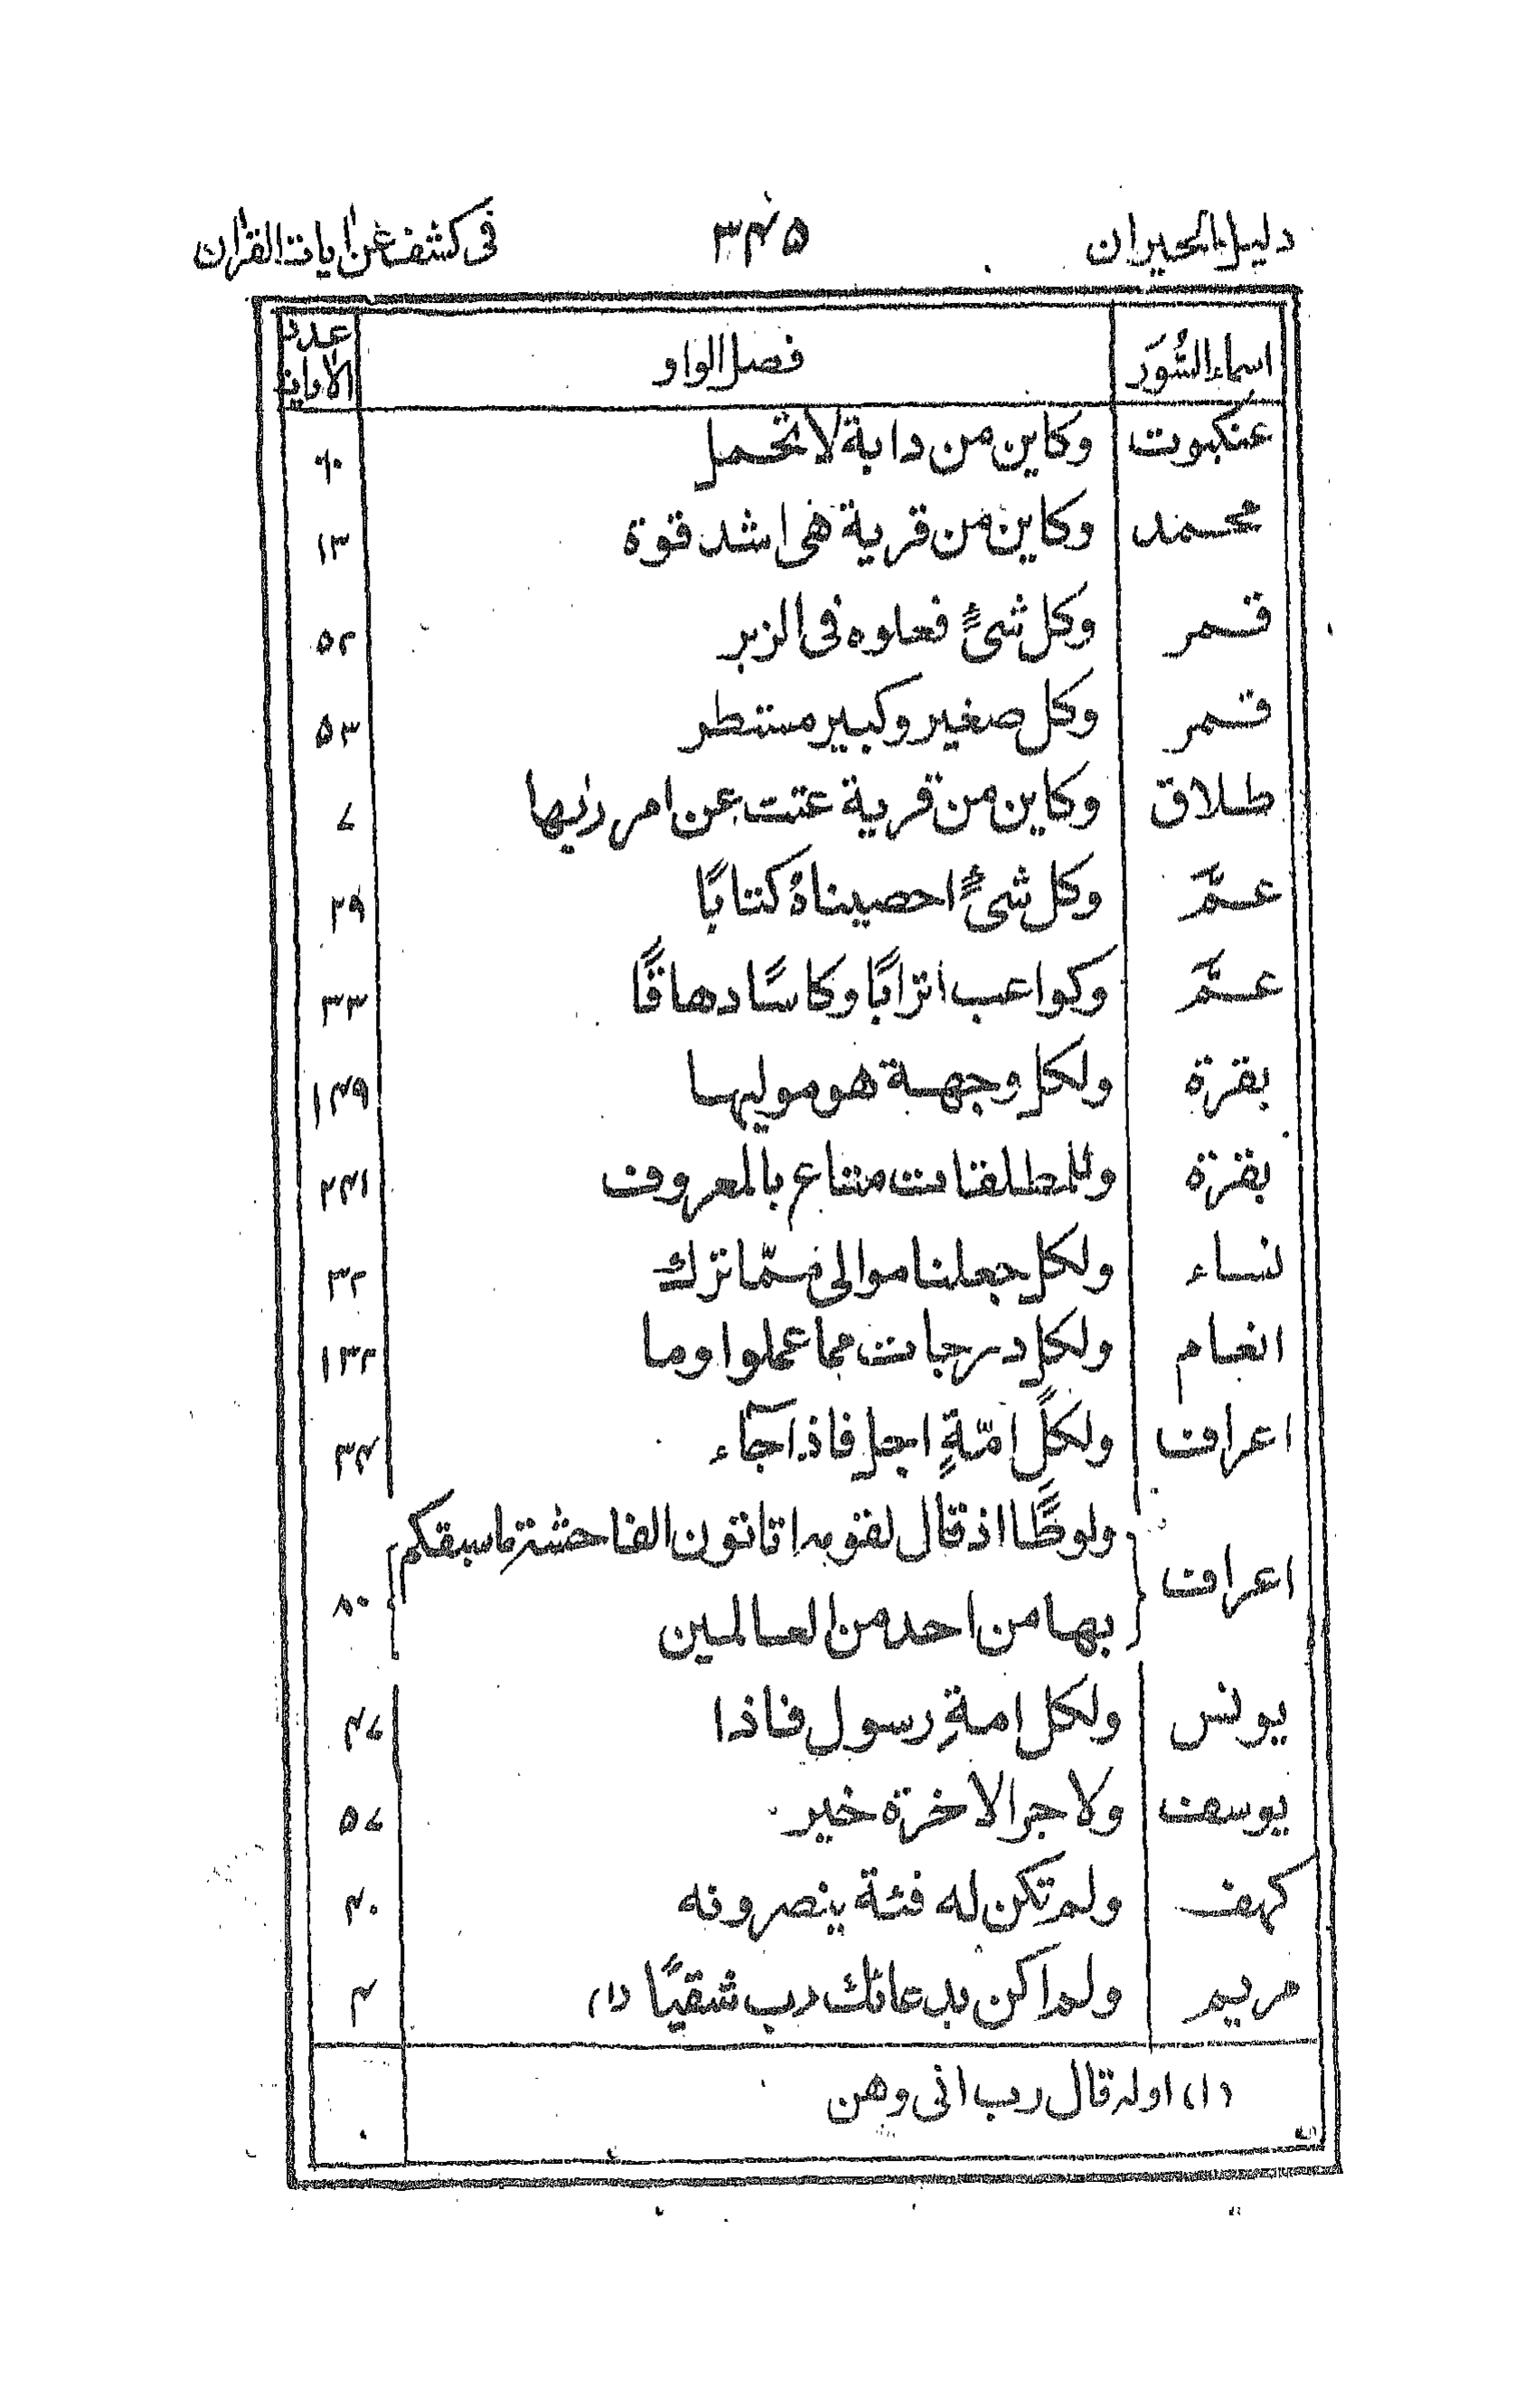 دليل الحيران ٣٤٥ فى كشف عن ايات القران
اسماء السُّوَر فصل الواو عدد الايات
عنكبوت وكاين من دابة لا تحمل ٦٠
محمد وكاين من قرية هى اشد قوة ١٣
قمر وكل شىءٍ فعلوه فى الزبر ٥٢
قمر وكل صغير وكبير مستطر ٥٣
طلاق وكاين من قرية عتت عن امر ربها ٧
عمَّ وكل شىءٍ احصيناهُ كتابًا ٢٩
عمَّ وكواعب اترابًا وكاسًا دهاقًا ٣٣
بقرة ولكل وجهة هو موليها ١٤٩
بقرة وللمطلقات متاع بالمعروف ٢٤١
نساء ولكل جعلنا موالى ممّا ترك ٣٢
انعام ولكل درجات مما عملوا وما ١٣٢
اعراف ولكلِّ امّةٍ اجل فاذا جآء ٣٤
اعراف ولوطًا اذ قال لقومه اتاتون الفاحشة ماسبقكم
بها من احد من العالمين ٨٠
يونس ولكل امةِ رسول فاذا ٤٧
يوسف ولاجر الاخرة خير ٥٧
كهف ولم تكن له فئة ينصرونه ٤٠
مريم ولم اكن بدعائك رب شقيًا (١) ٤
(١) اوله قال رب انى وهن